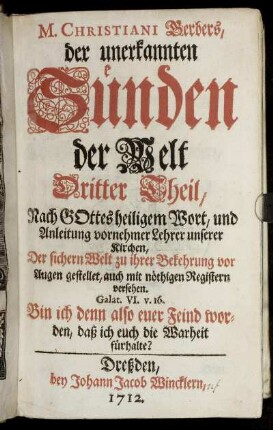 M. CHRISTIANI Gerbers,
der unerkannten
Suͤnden
der Welt
Dritter Theil,
Nach GOttes heiligem Wort, und
Anleitung vornehmer Lehrer unserer
Kirchen,
Der sichern Welt zu ihrer Bekehrung vor
Augen gestellet, auch mit nöthigen Registern
versehen.
Galat. VI. v. 16.
Bin ich denn also euer Feind wor-
den, daß ich euch die Warheit
fürhalte?
Dreßden,
bey Johann Jacob Wincklern,
1712.